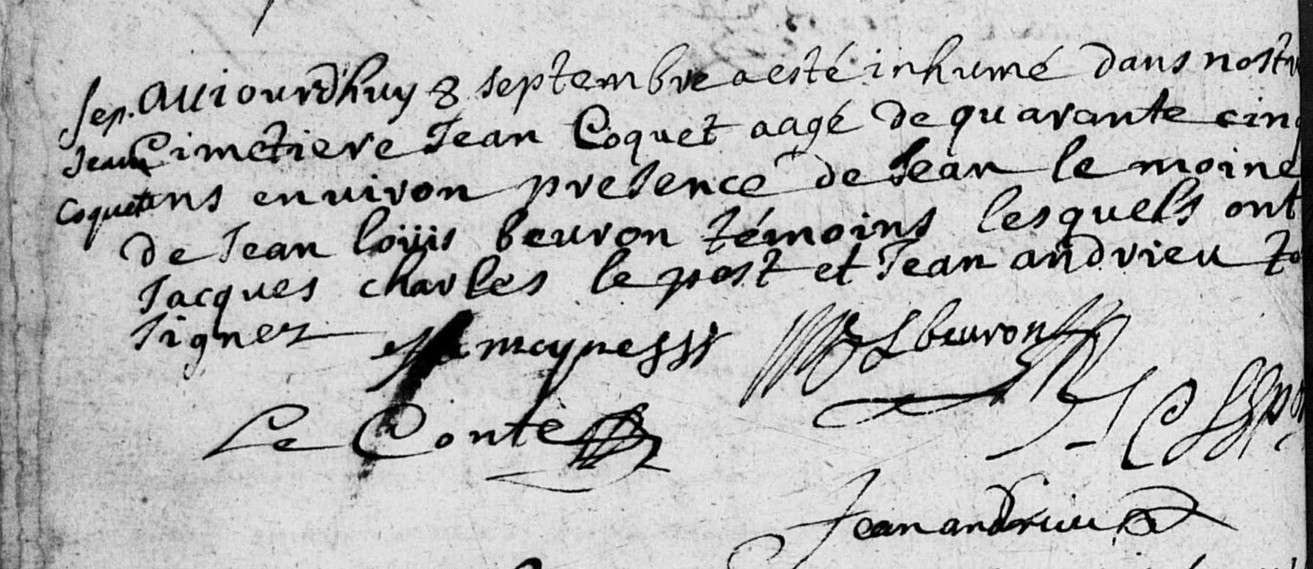 Sep. Aujourd'huy 8 septembre a esté inhumé dans nostr
Jean Cimetiere Jean Coquet aagé de quarante cinq
Coquet ans environ presence de Jean le moine
de Jean loüis beuron témoins lesquels ont
Jacques charles le post et Jean andrieu to
signez
L beuron
Le Conte
Jean andrieu